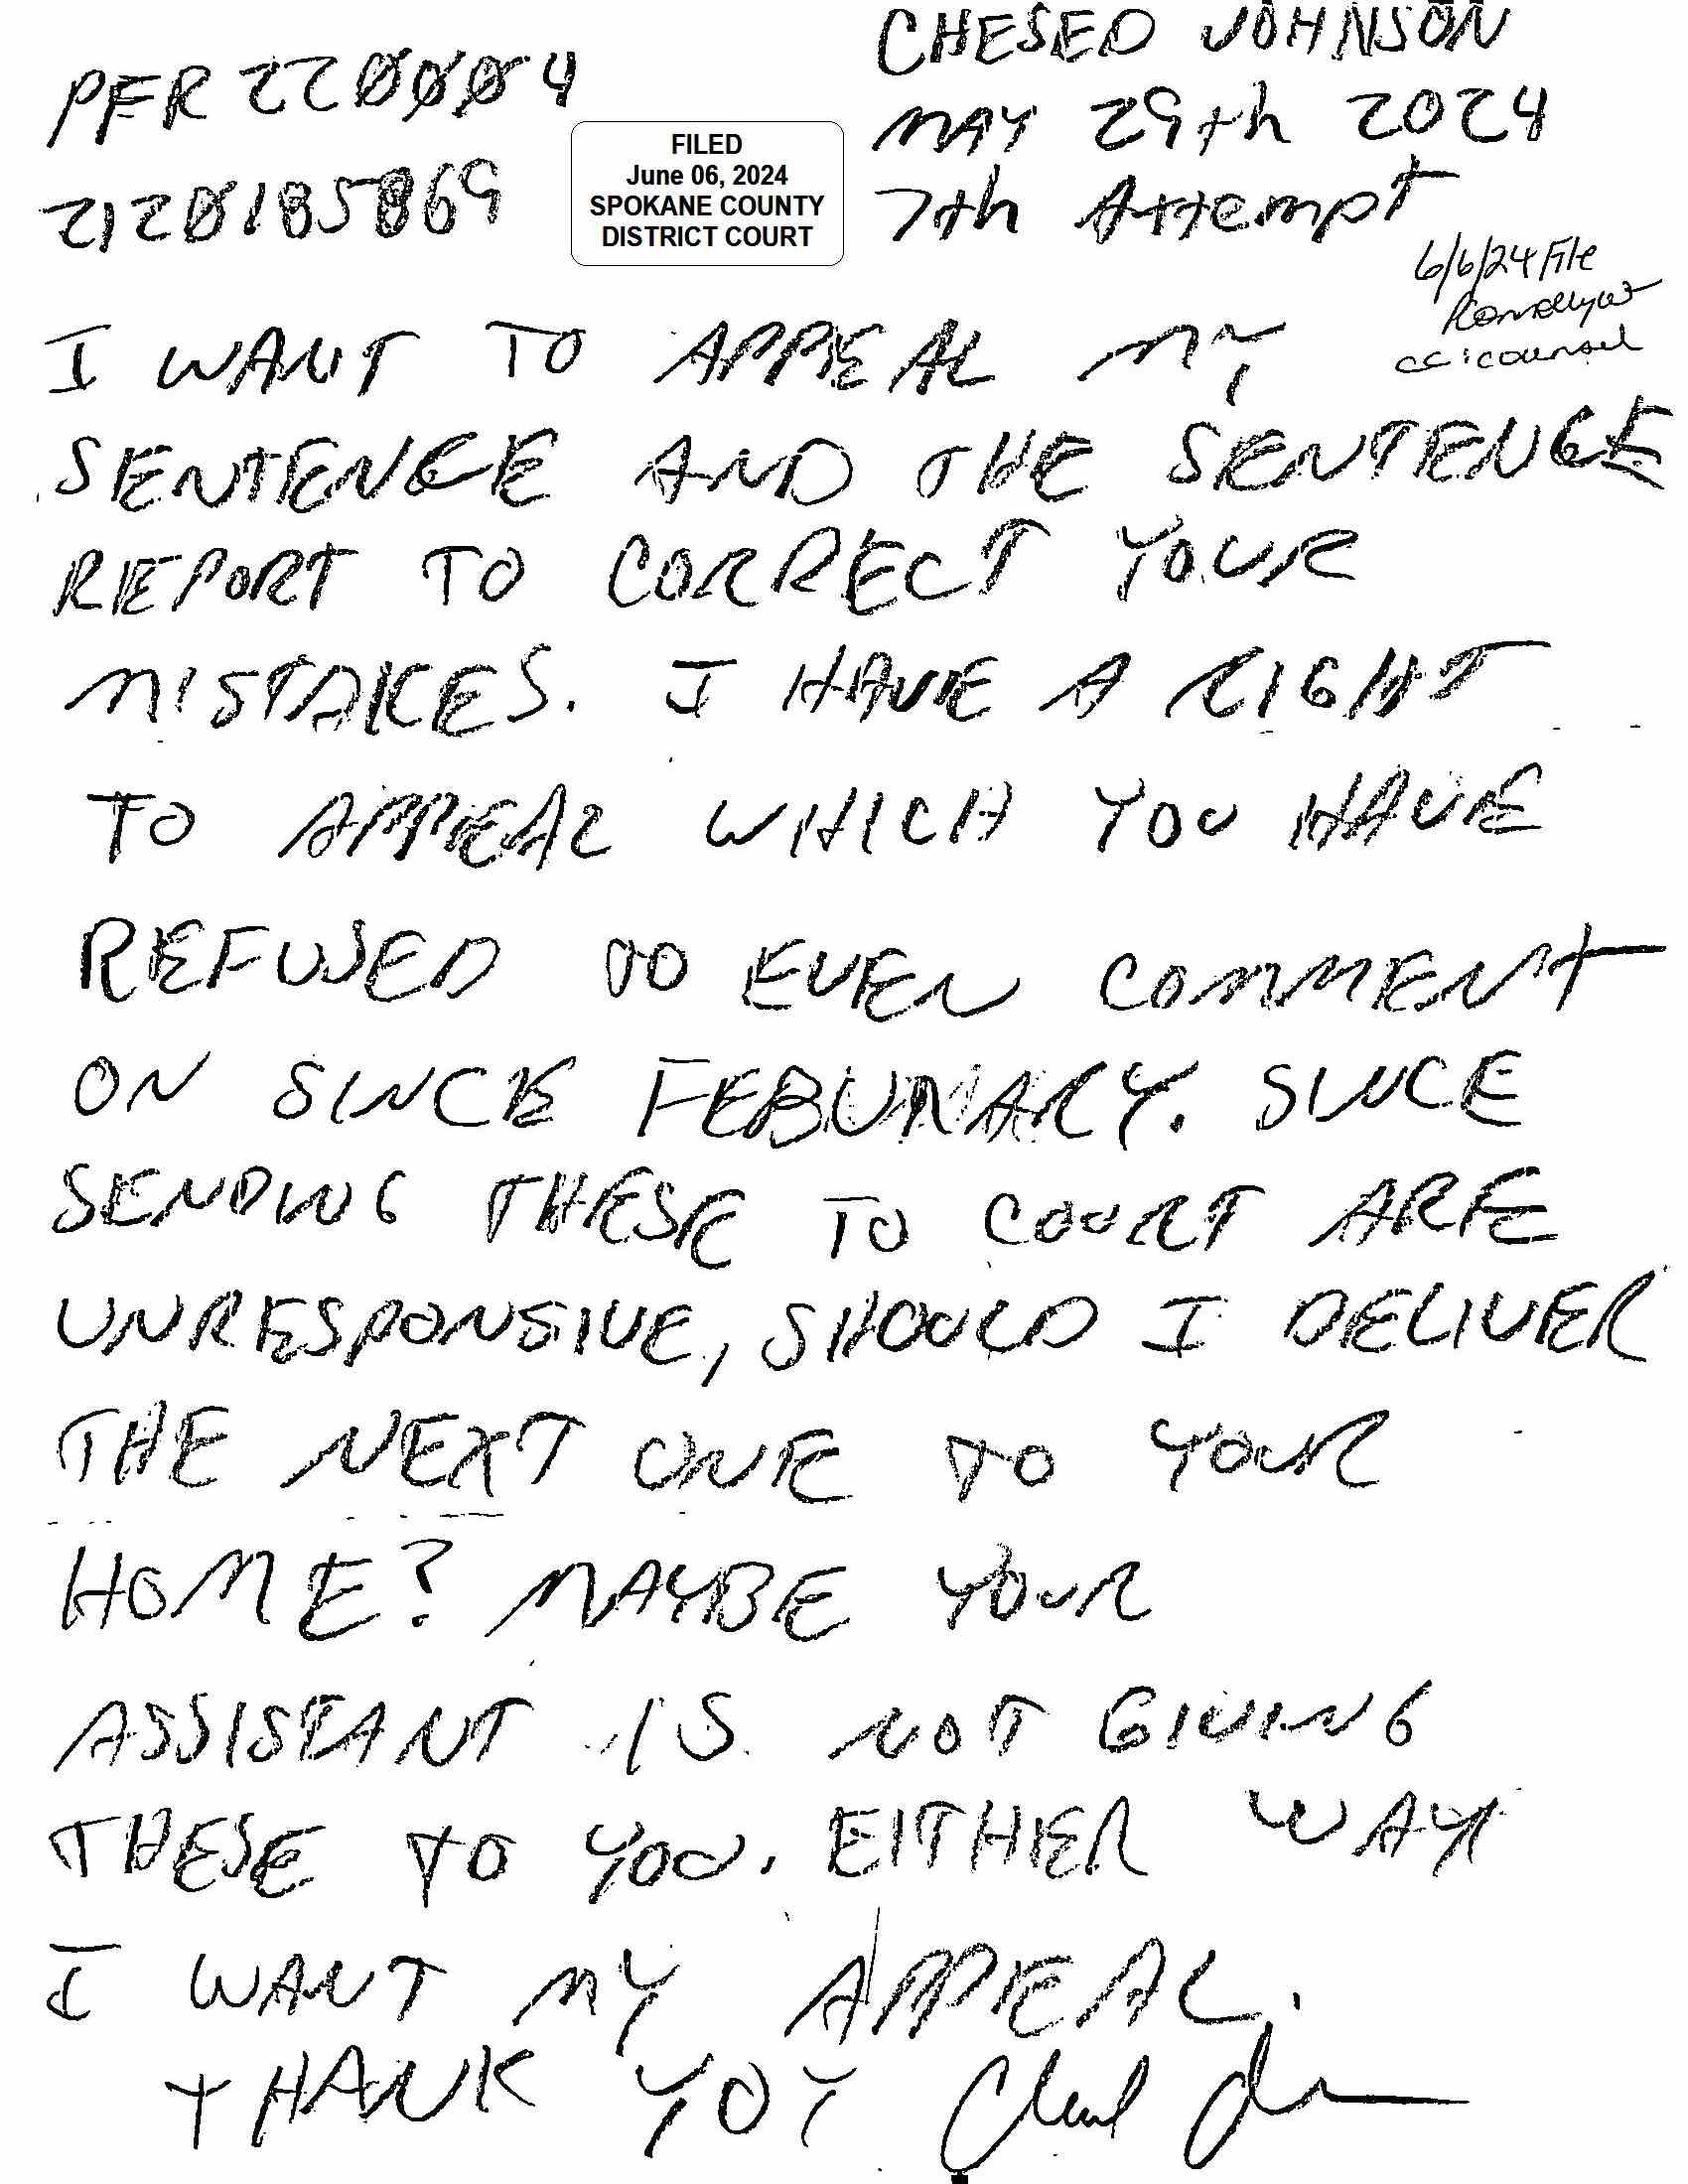 CHESED JOHNSON
PFR 22ØØØ4
MAY 29th 2024
FILED
June 06, 2024
SPOKANE COUNTY
DISTRICT COURT
7th Attempt
6/6/24 File
cc: counsel
I WANT TO APPEAL MY
SENTENCE AND THE SENTENCE
REPORT TO CORRECT YOUR
MISTAKES. I HAVE A RIGHT
TO APPEAL WHICH YOU HAVE
REFUSED TO EVEN COMMENT
ON SINCE FEBUNARY. SINCE
SENDING THESE TO COURT ARE
UNRESPONSIVE, SHOULD I DELIVER
THE NEXT ONE TO YOUR
HOME? MAYBE YOUR
ASSISTANT IS NOT GIVING
THESE TO YOU. EITHER WAY
I WANT MY APPEAL.
THANK YOY